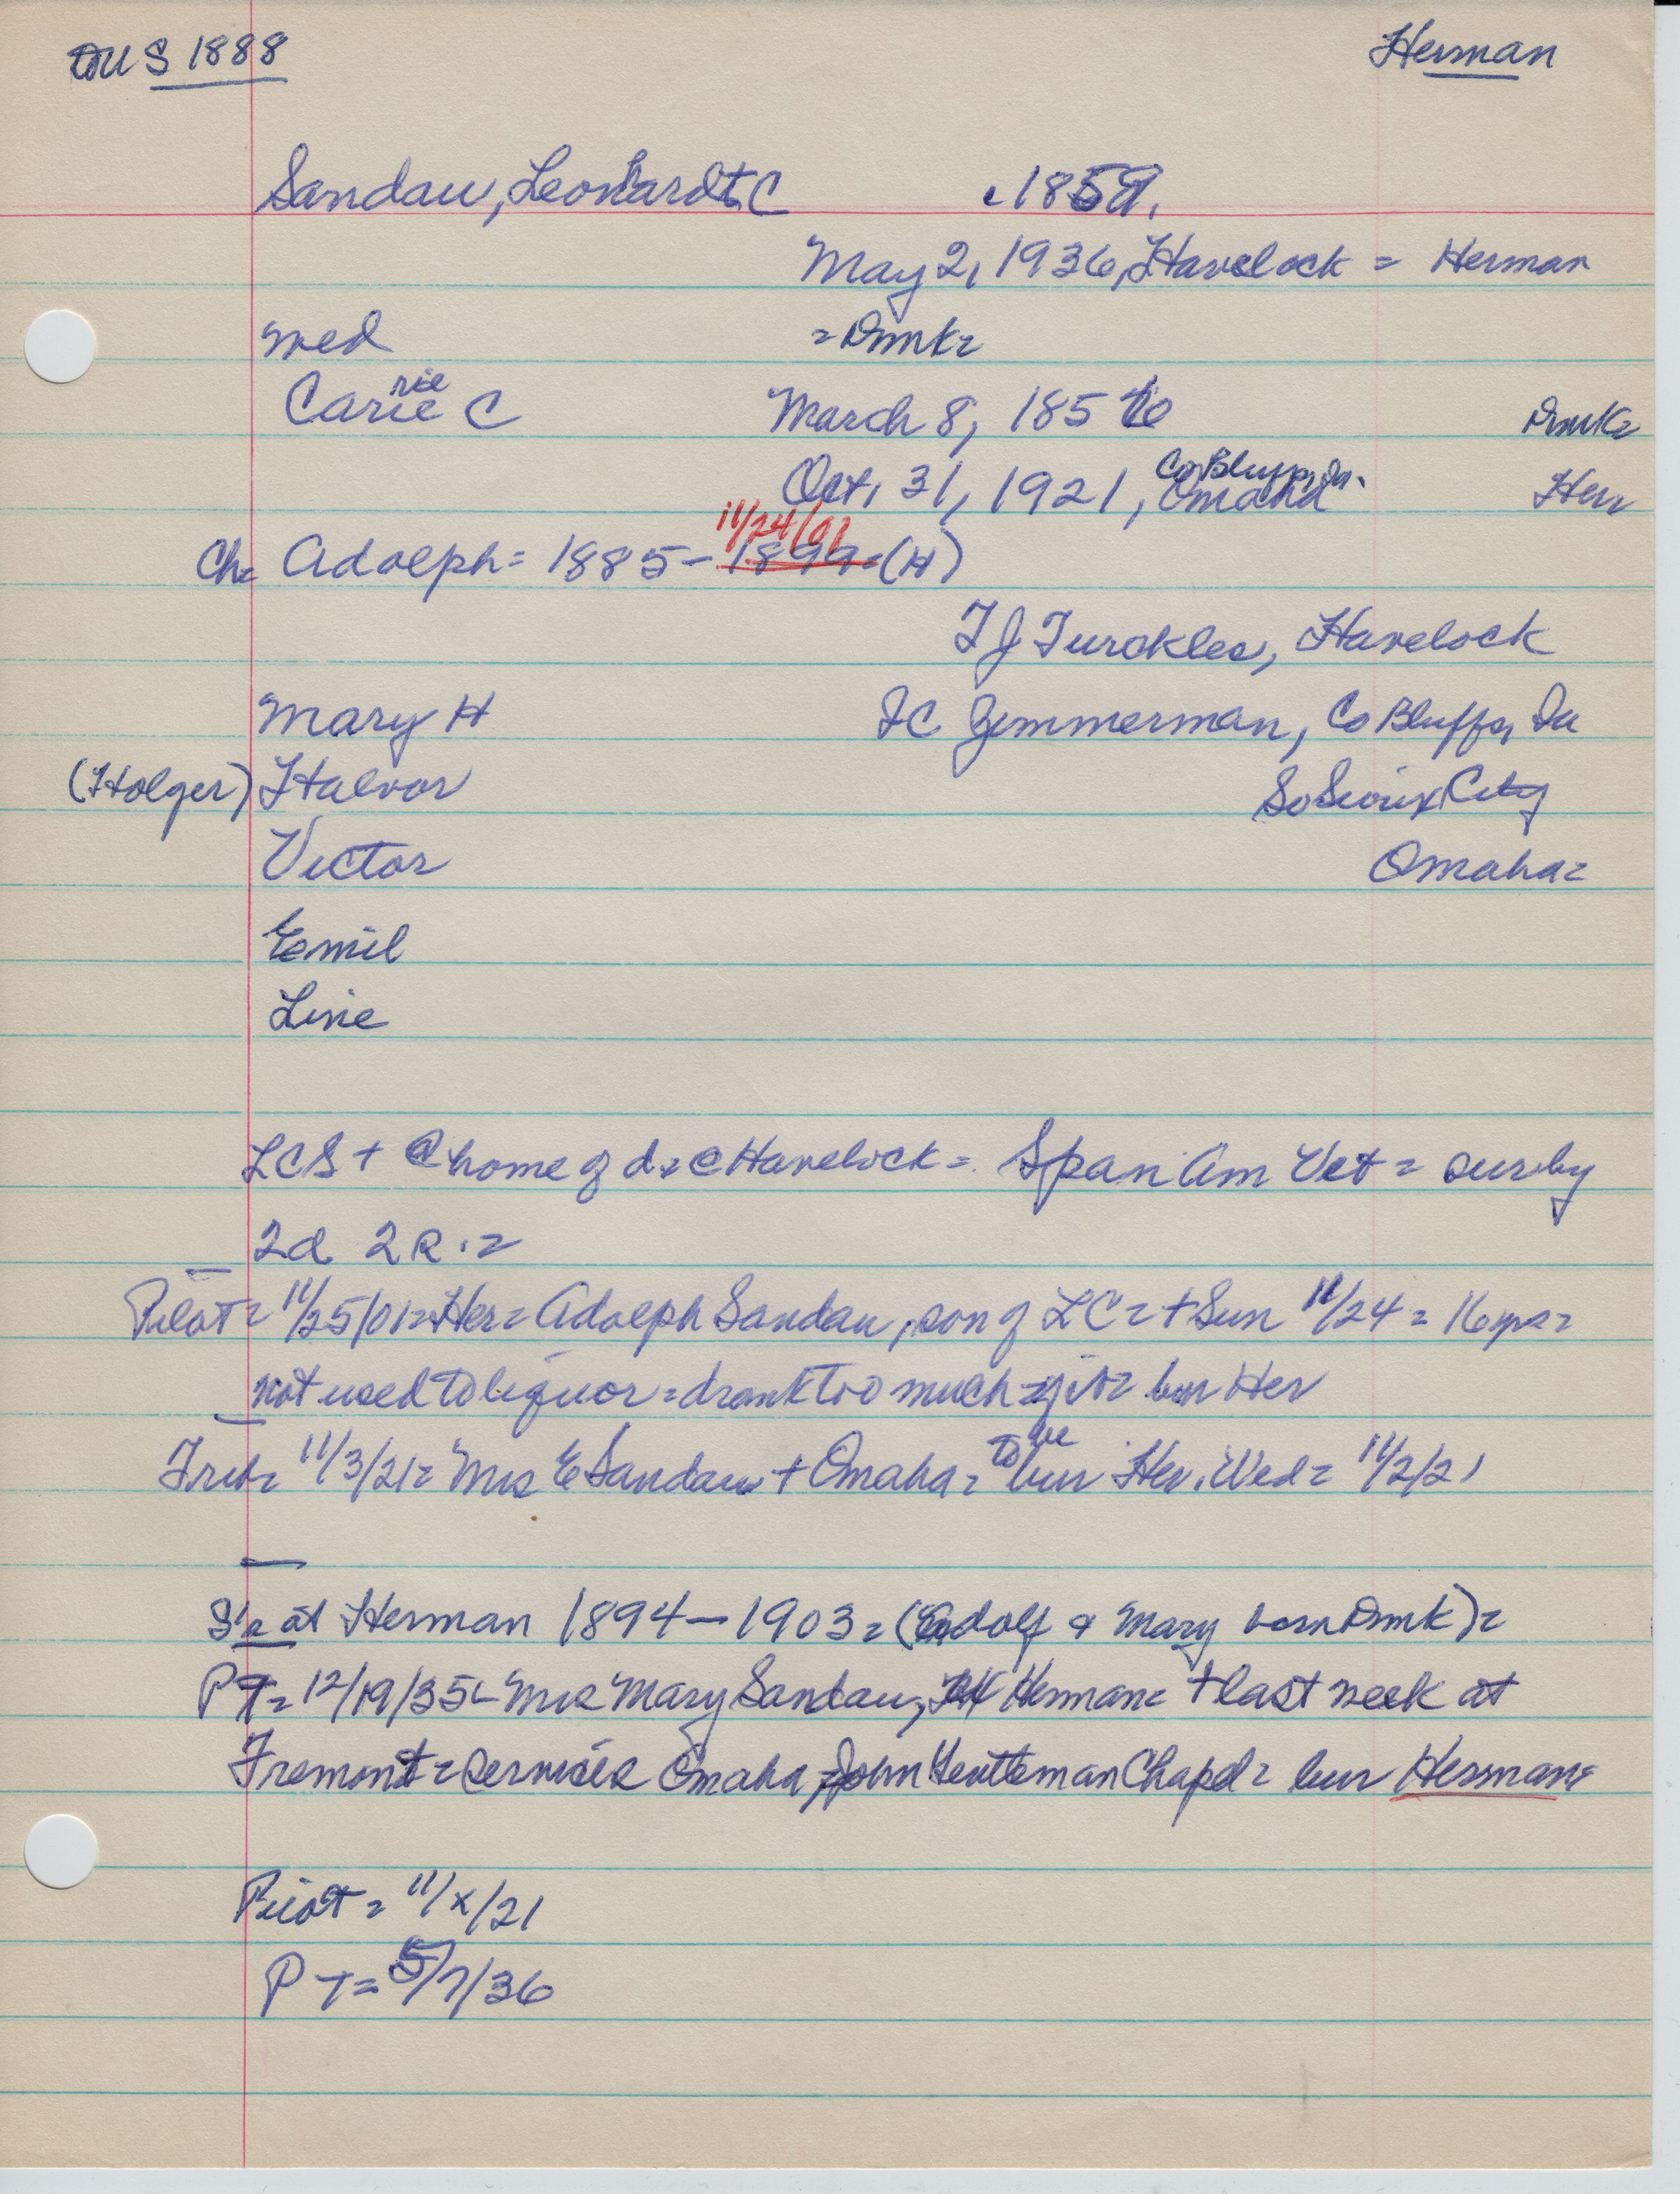 US 1888 Herman
Sandau, Leonhardt C c1859.
May 2, 1936, Havelock = Herman
med = Dmk =
Carrie C March 8, 185 Dmk =
Oct. 31, 1921, Omaha Co Bluffs, Ia. Her
Ch = Adolph = 1885 - 1899 = (H) 11/24/01
T J Turckles, Havelock
Mary H J C Zimmerman, Co Bluffs, Ia
(Holger) Halvor So Sioux City
Victor Omaha =
Emil
Line
LCS + @ home of d = @ Havelock = Span Am Vet = sur by
2d 2R. =
Pilot = 11/25/01 = Her = Adolph Sandau, son of LC = + Sun 11/24 = 16 yrs =
not used to liquor = drank too much = bur Her
11/3/21 = Mrs E Sandau + Omaha = to be bur Her. Wed = 11/2/21
S's at Herman 1894 - 1903 = (Adolf & Mary born Dmk) =
PT = 12/19/35 - Mrs Mary Sandau, Herman = + last week at
Fremont = services Omaha, John Gentleman Chapel = bur Herman =
Pilot = 11/x/21
PT = 5/7/36